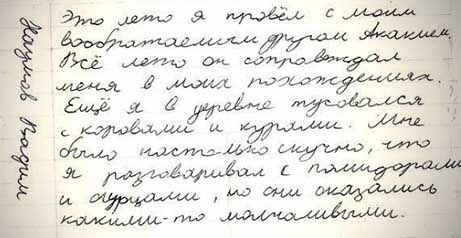 Это лето я провёл с моим
воображаемым другом Акакием.
Всё лето он сопровождал
меня в моих похождениях.
Ещё я в деревне тусовался
с коровами и курами. Мне
было настолько скучно, что
я разговаривал с помидорами
и огурцами, но они оказались
какими-то молчаливыми.
Наумов Вадим